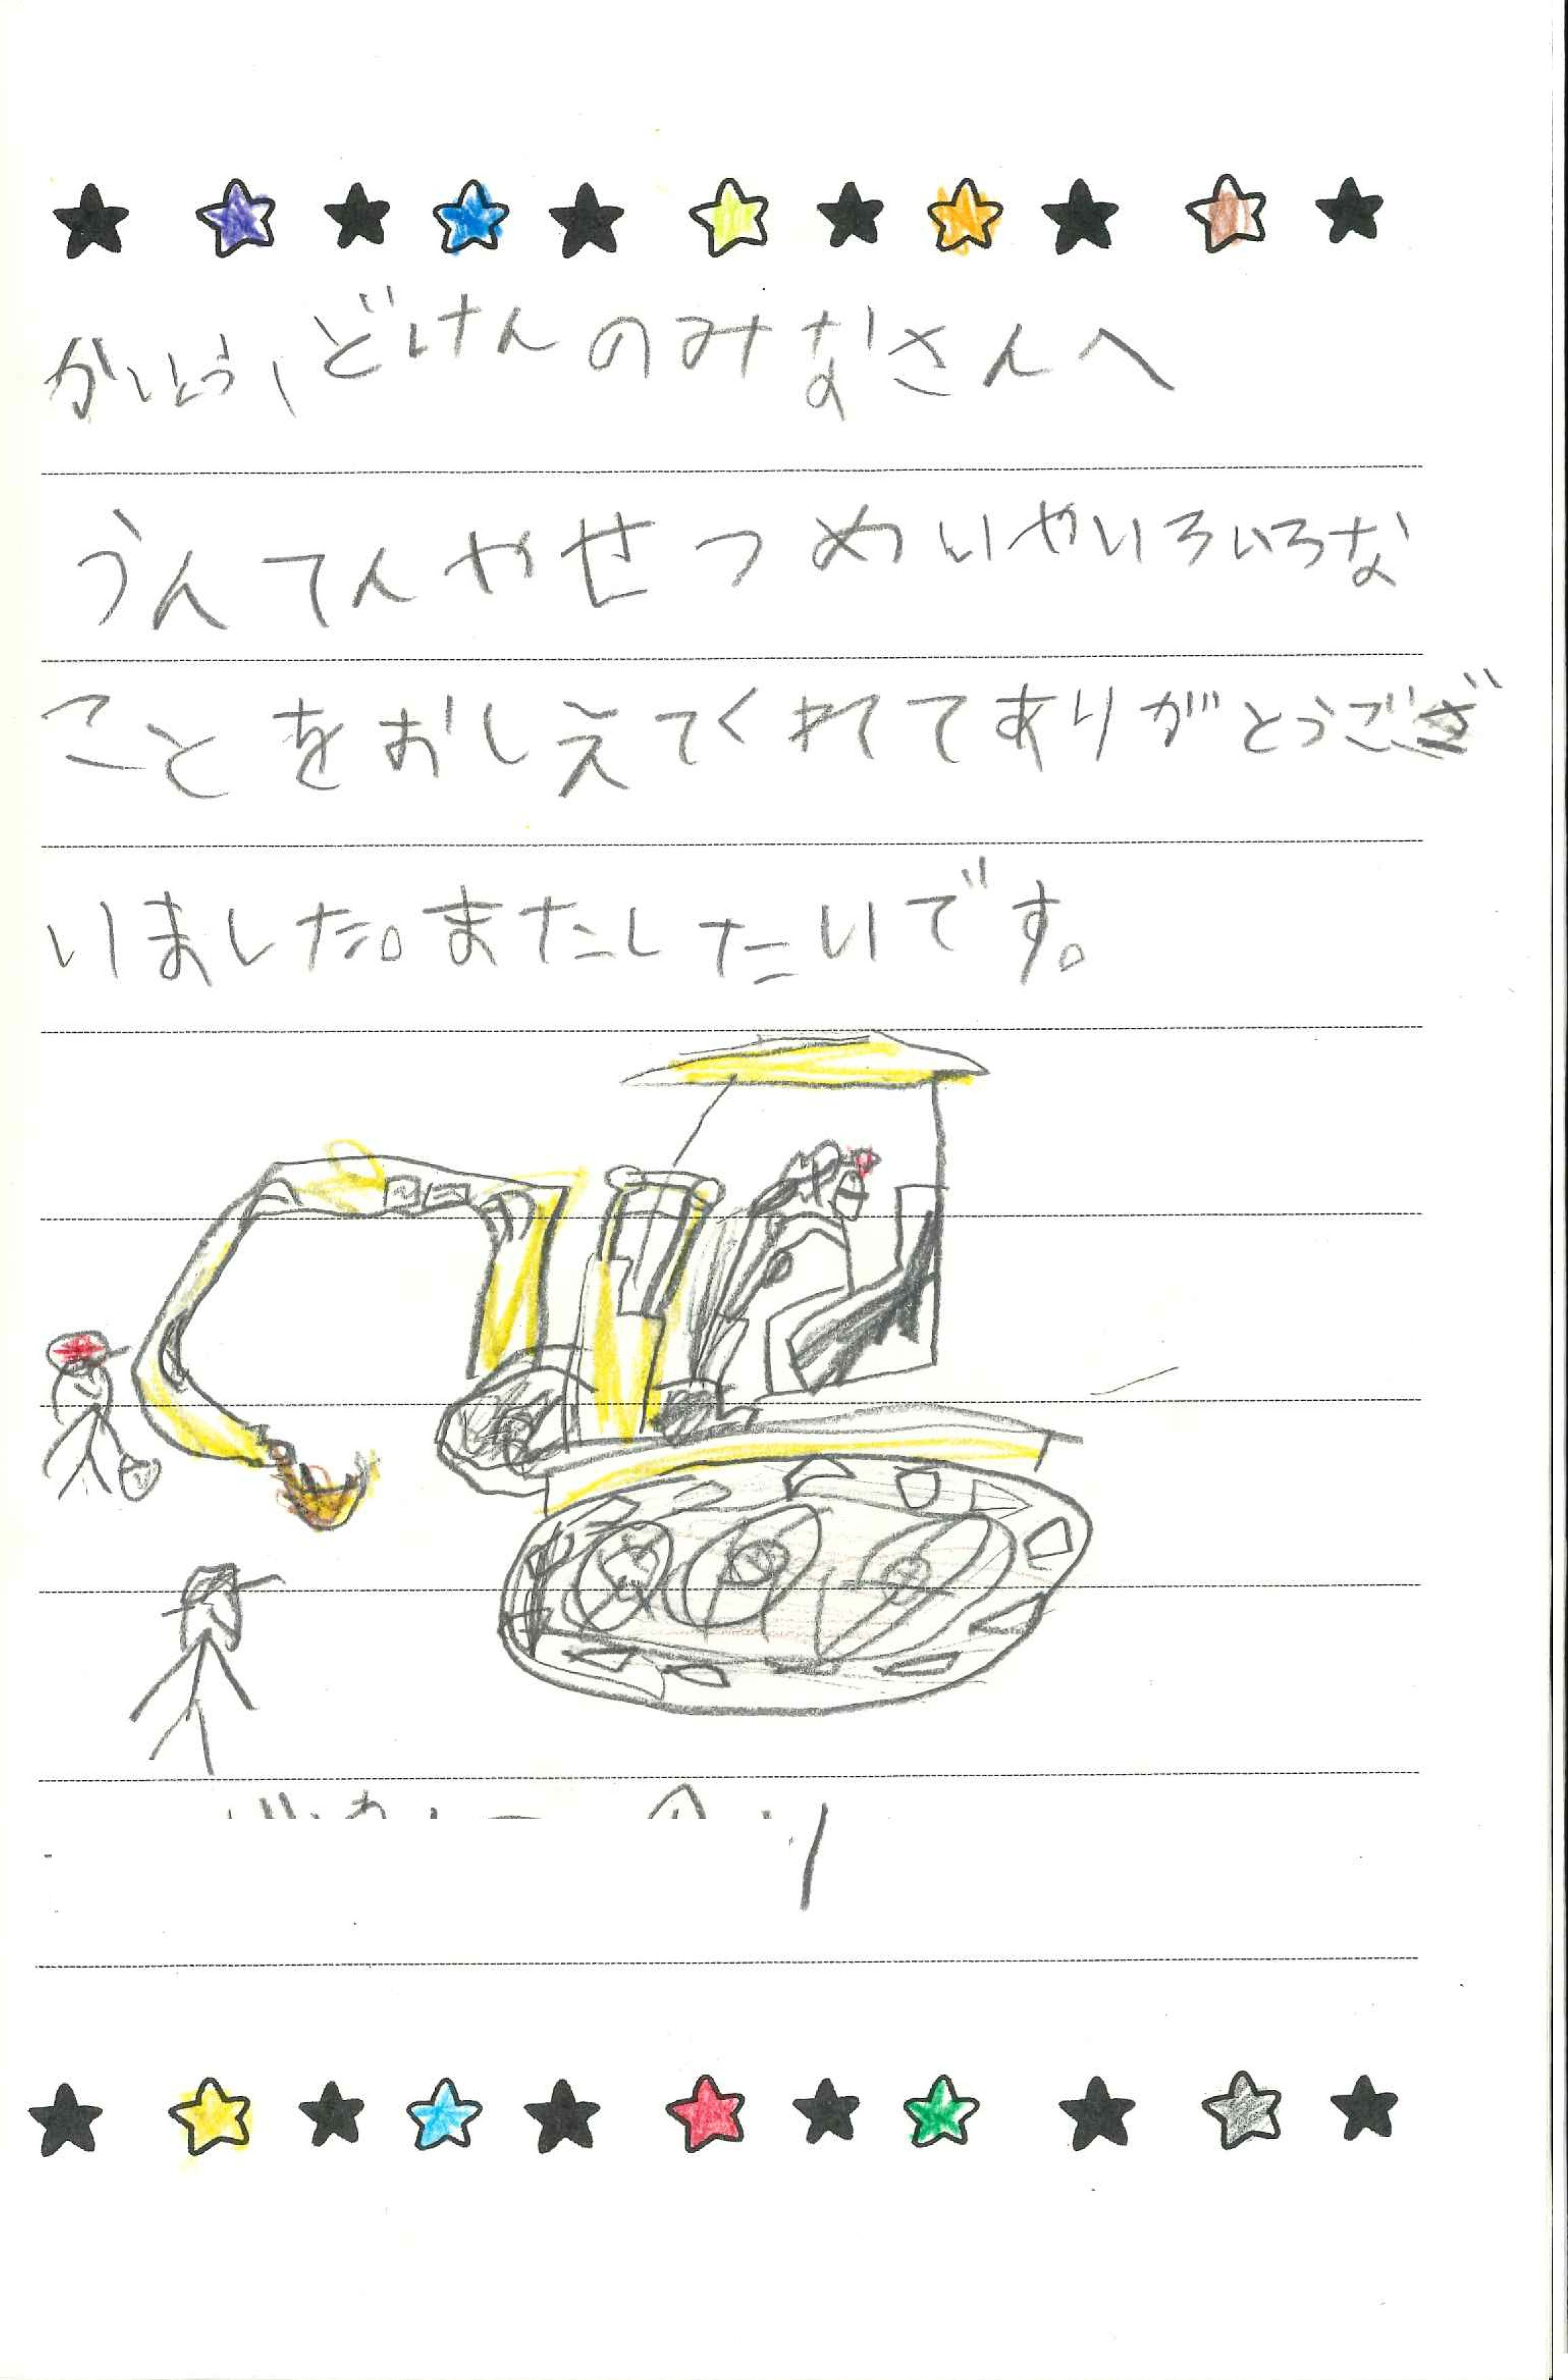 どけんのみなさんへ
うんてんやせつめいやいろいろな
ことをおしえてくれてありがとうござ
いました。またしたいです。